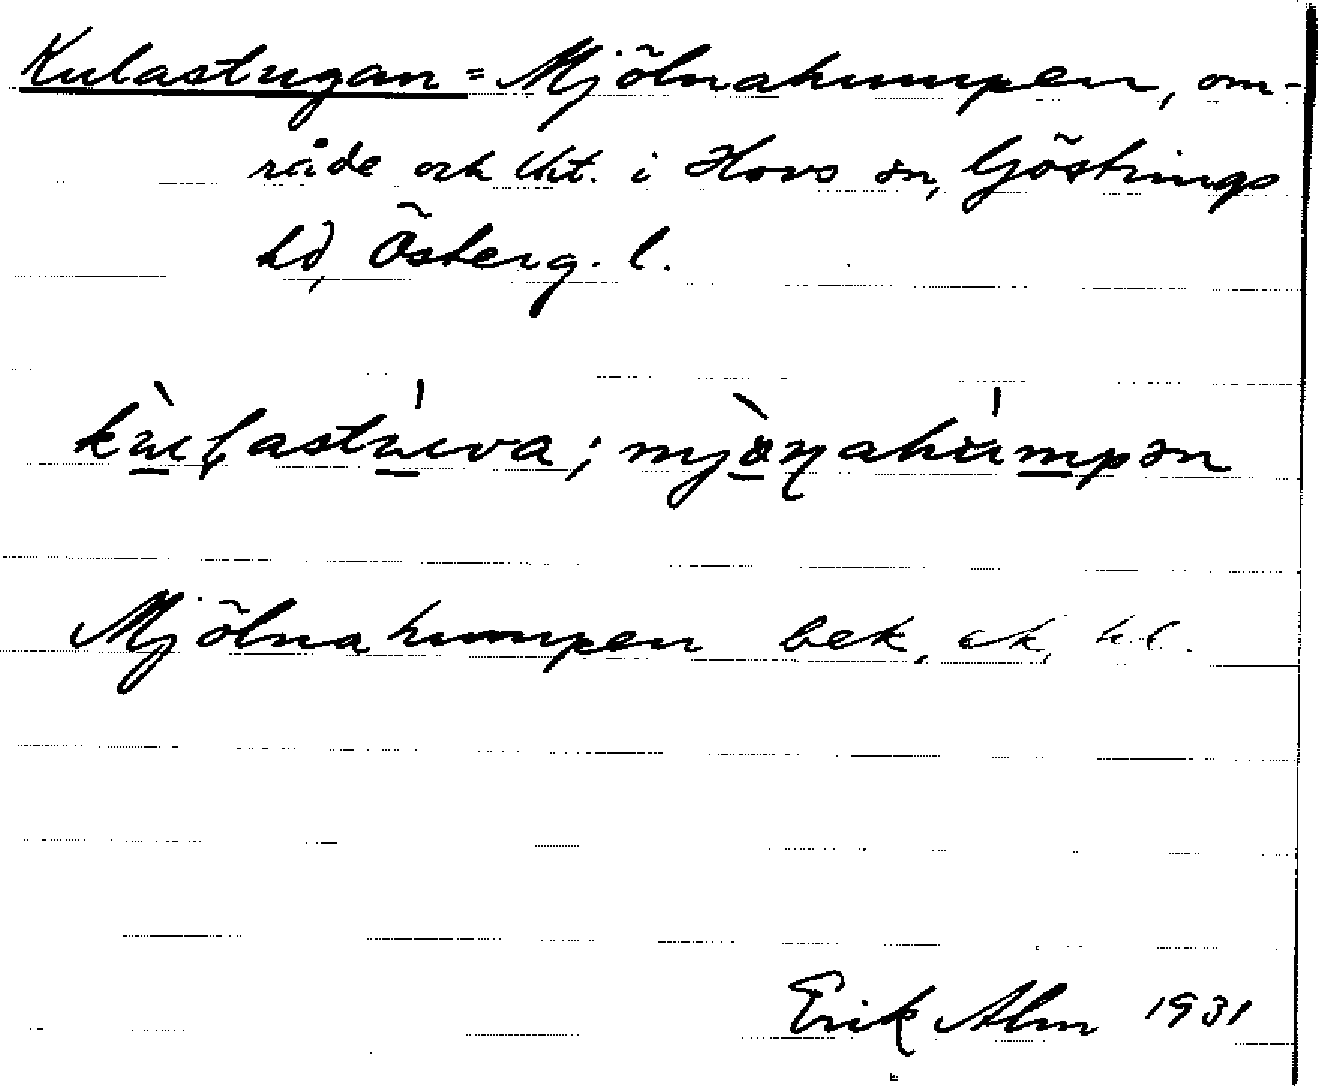 Kulastugan = Mjölnahumpen, om-
råde och lht. i Hovs sn, Göstrings
hd, Österg. l.
mjönahumpən
Mjölnahumpen bek.
Erik Alm 1931